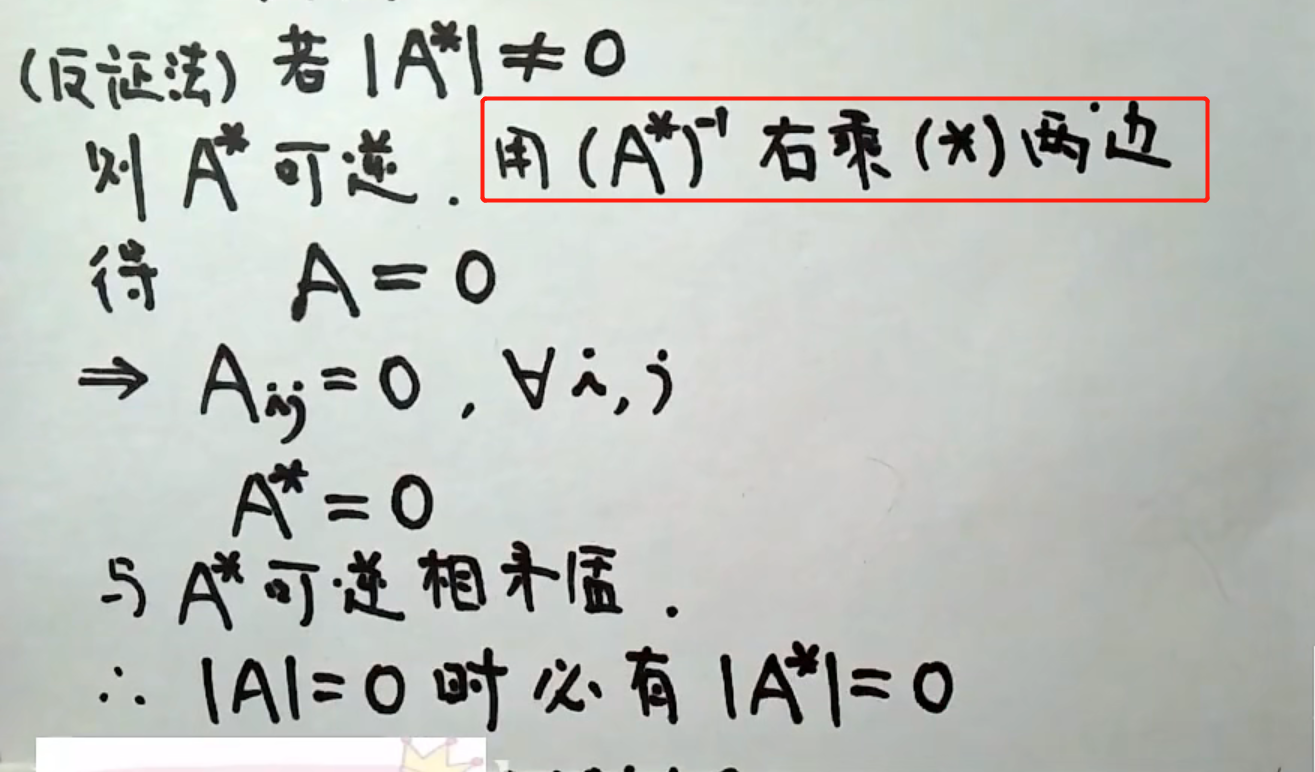 (反证法) 若 |A*| ≠ 0
则 A* 可逆. 用 (A*)⁻¹ 右乘 (*) 两边
得 A = 0
⇒ Aij = 0, ∀ i, j
A* = 0
与 A* 可逆相矛盾.
∴ |A| = 0 时必有 |A*| = 0